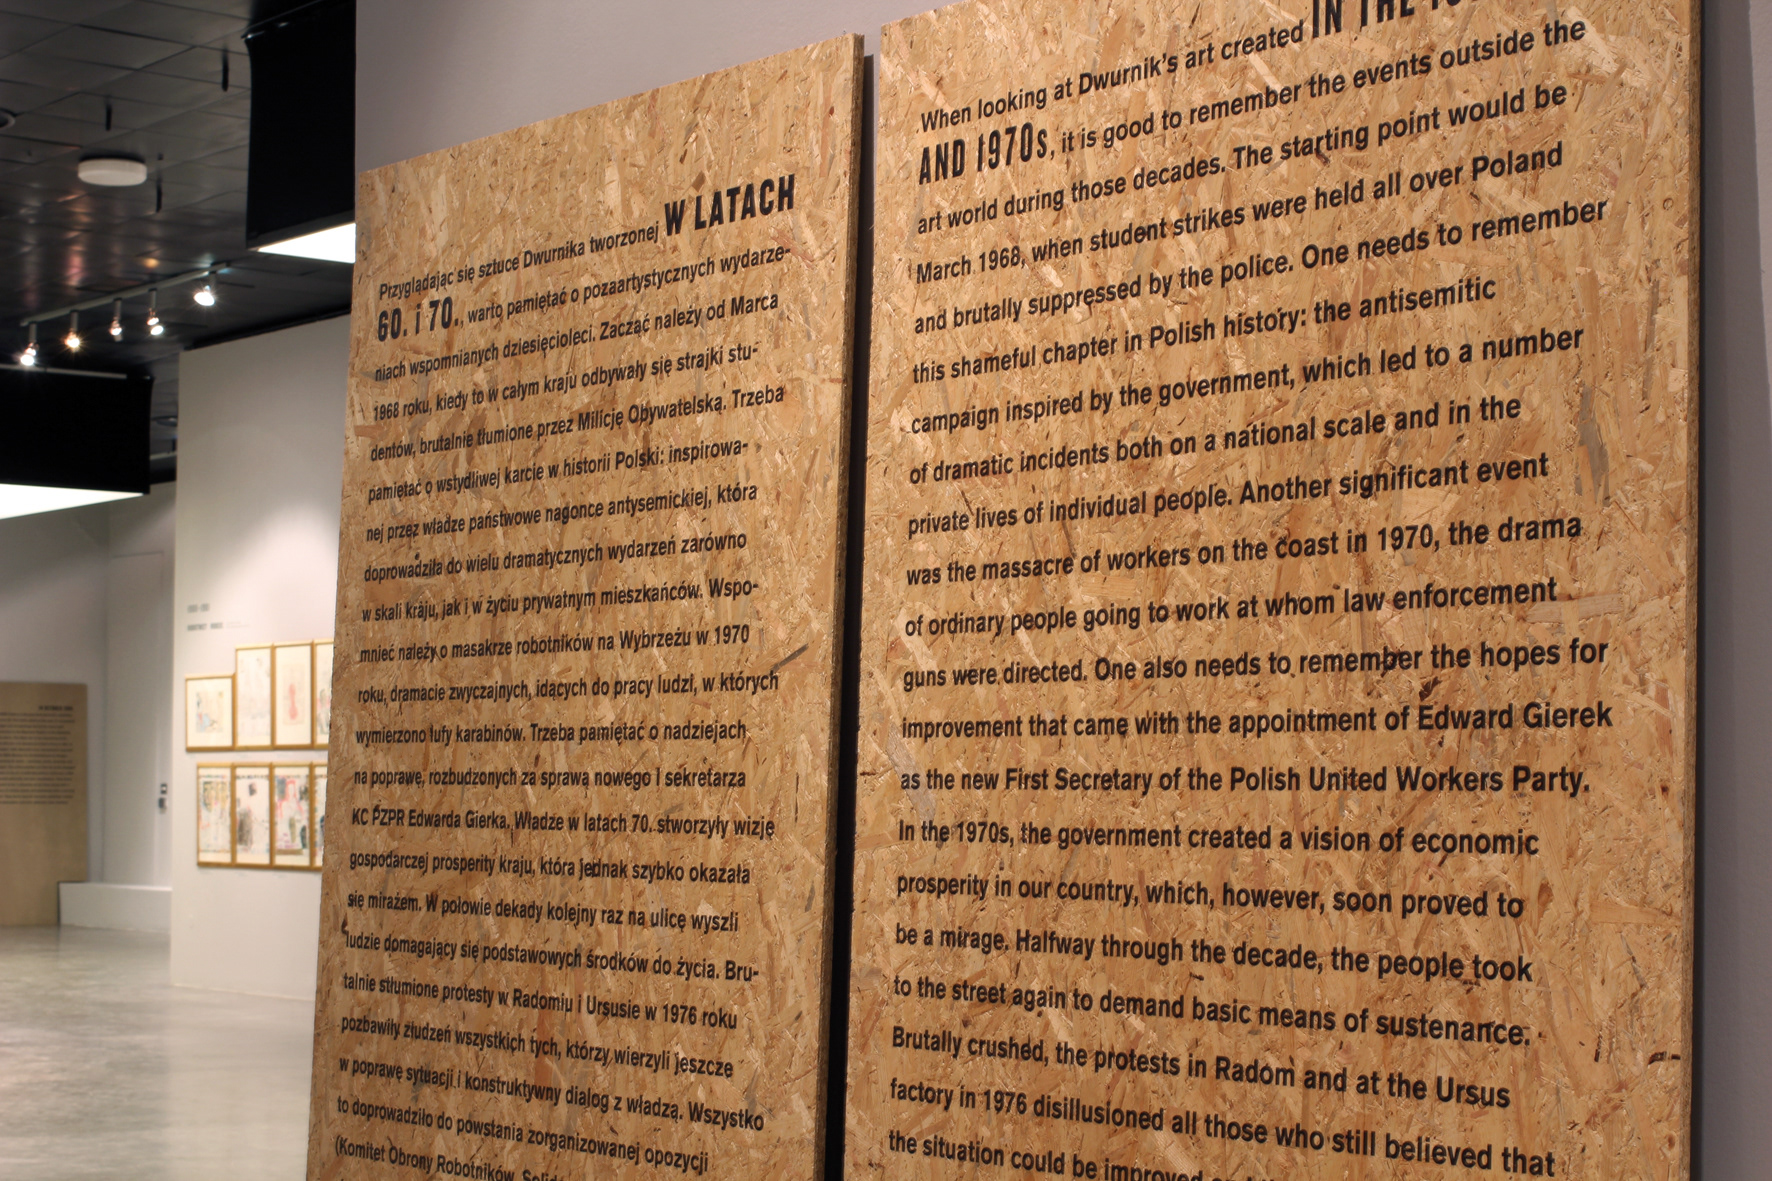 Przyglądając się sztuce Dwurnika tworzonej W LATACH
60. i 70., warto pamiętać o pozaartystycznych wydarze-
niach wspomnianych dziesięcioleci. Zacząć należy od Marca
1968 roku, kiedy to w całym kraju odbywały się strajki stu-
dentów, brutalnie tłumione przez Milicję Obywatelską. Trzeba
pamiętać o wstydliwej karcie w historii Polski: inspirowa-
nej przez władze państwowe nagonce antysemickiej, która
doprowadziła do wielu dramatycznych wydarzeń zarówno
w skali kraju, jak i w życiu prywatnym mieszkańców. Wspo-
mnieć należy o masakrze robotników na Wybrzeżu w 1970
roku, dramacie zwyczajnych, idących do pracy ludzi, w których
wymierzono lufy karabinów. Trzeba pamiętać o nadziejach
na poprawę, rozbudzonych za sprawą nowego I sekretarza
KC PZPR Edwarda Gierka. Władze w latach 70. stworzyły wizję
gospodarczej prosperity kraju, która jednak szybko okazała
się mirażem. W połowie dekady kolejny raz na ulicę wyszli
ludzie domagający się podstawowych środków do życia. Bru-
talnie stłumione protesty w Radomiu i Ursusie w 1976 roku
pozbawiły złudzeń wszystkich tych, którzy wierzyli jeszcze
w poprawę sytuacji i konstruktywny dialog z władzą. Wszystko
to doprowadziło do powstania zorganizowanej opozycji
(Komitet Obrony Robotników,
When looking at Dwurnik's art created IN THE
AND 1970s, it is good to remember the events outside the
art world during those decades. The starting point would be
March 1968, when student strikes were held all over Poland
and brutally suppressed by the police. One needs to remember
this shameful chapter in Polish history: the antisemitic
campaign inspired by the government, which led to a number
of dramatic incidents both on a national scale and in the
private lives of individual people. Another significant event
was the massacre of workers on the coast in 1970, the drama
of ordinary people going to work at whom law enforcement
guns were directed. One also needs to remember the hopes for
improvement that came with the appointment of Edward Gierek
as the new First Secretary of the Polish United Workers Party.
In the 1970s, the government created a vision of economic
prosperity in our country, which, however, soon proved to
be a mirage. Halfway through the decade, the people took
to the street again to demand basic means of sustenance.
Brutally crushed, the protests in Radom and at the Ursus
factory in 1976 disillusioned all those who still believed that
the situation could be improved